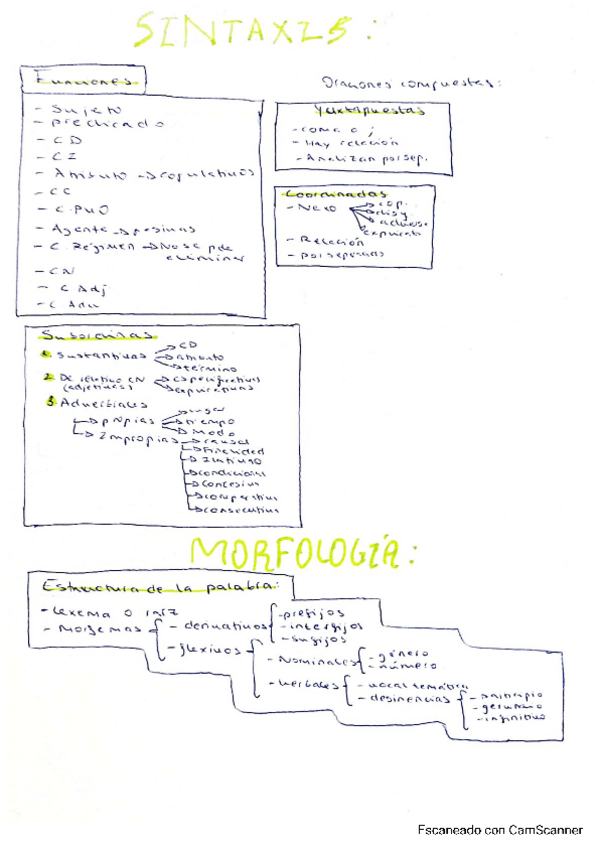 SINTAXIS:
Funciones
- Sujeto
- predicado
- CD
- CI
- Atributo → copulativos
- CC
- C.
- Agente → pasivas
- C. Régimen → No se pde eliminar
- CN
- C Adj
- C Adv
Oraciones compuestas:
Yuxtapuestas
- coma o ;
- Hay relación
- Analizan por sep.
Coordinadas
- Nexo → cop.
→ disy
→ advers
→ explicat
- Relación
- por separado
Subordinadas
1. Sustantivas → CD
→ atributo
→ término
2. De relativo CN (adjetivas) → especificativas
→ explicativas
3. Adverbiales
→ propias → lugar
→ tiempo
→ Modo
→ Impropias → causal
→ Finalidad
→ condicional
→ concesiva
→ comparativa
→ consecutiva
MORFOLOGÍA:
Estructura de la palabra:
- Lexema o raíz
- Morfemas { - derivativos { - prefijos
- interfijos
- sufijos
- flexivos { - Nominales { - género
- número
- Verbales { - vocal temática
- desinencias { - participio
- gerundio
- infinitivo
Escaneado con CamScanner